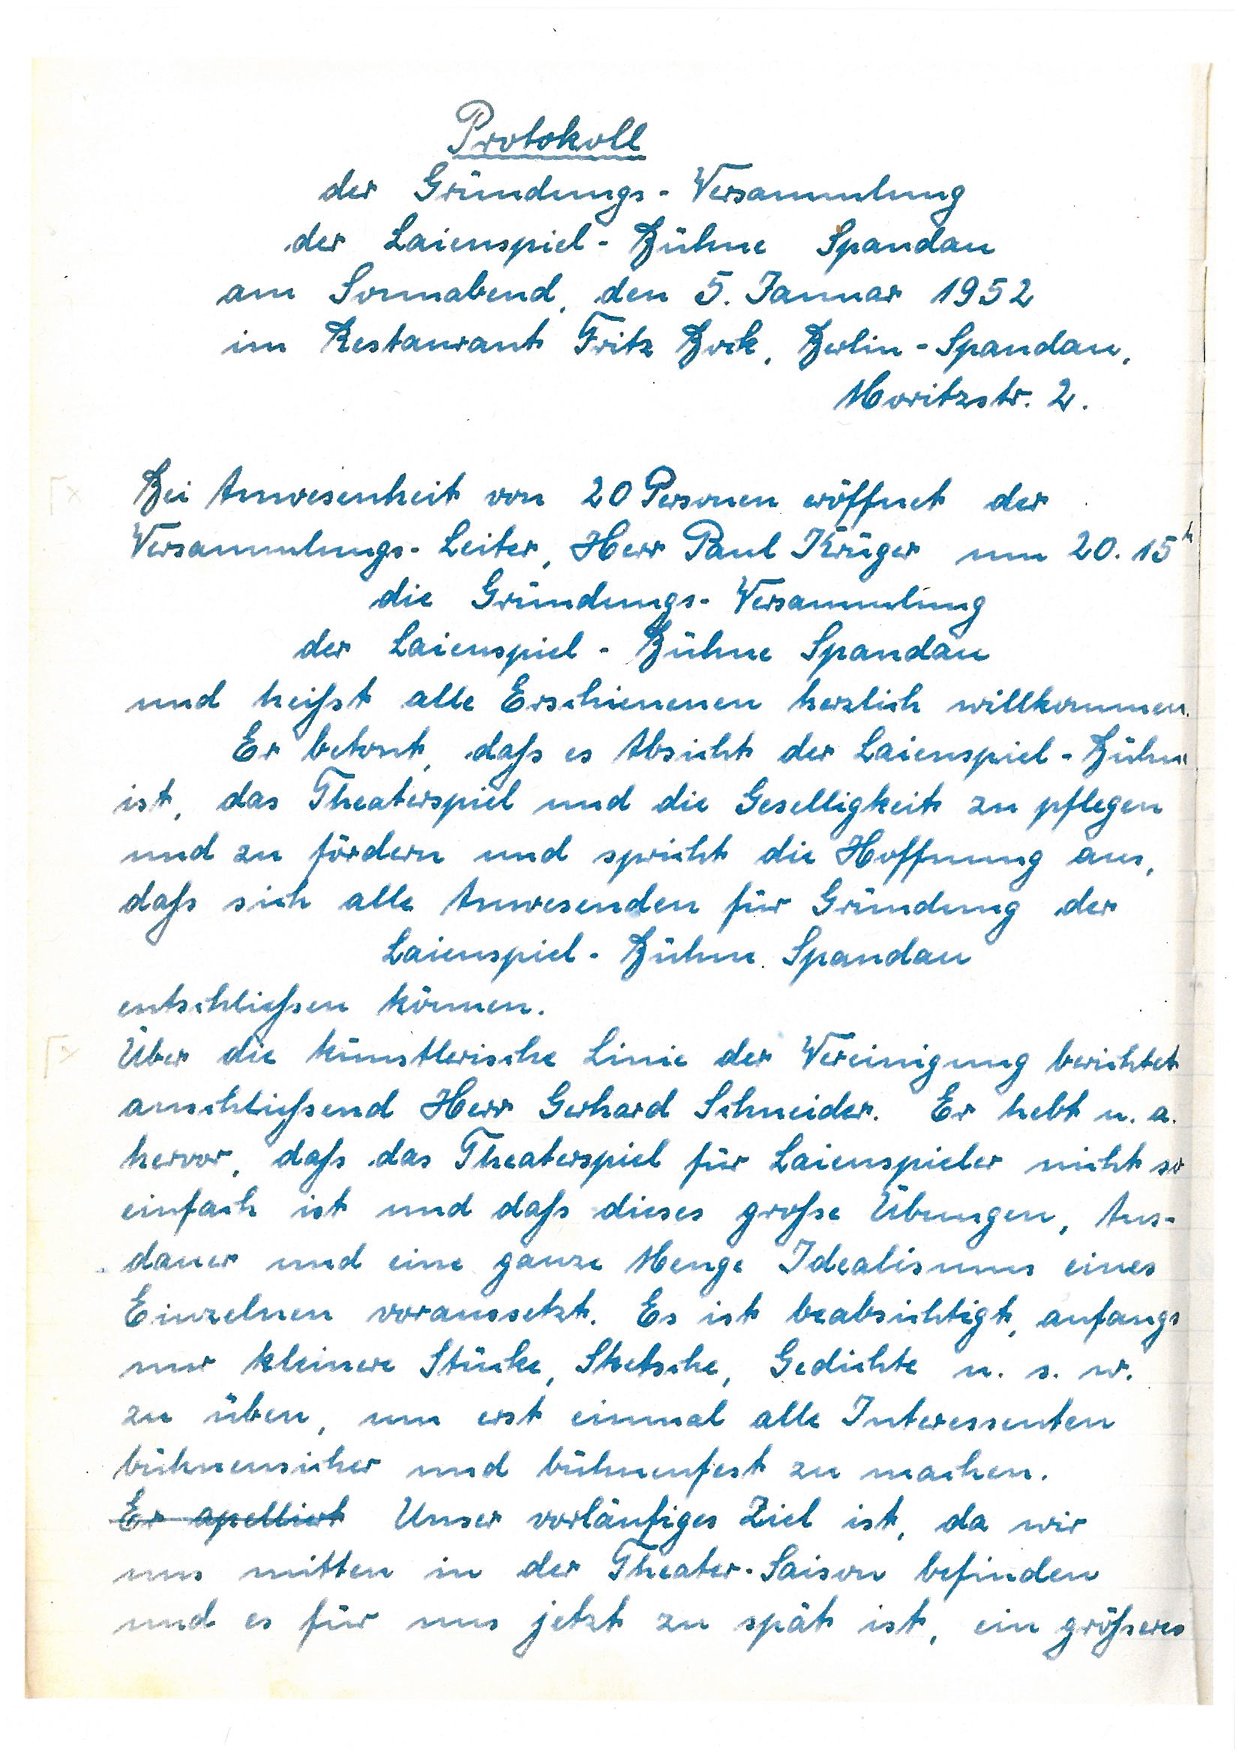 Protokoll
der Gründungs-Versammlung
der Laienspiel-Bühne Spandau
am Sonnabend, den 5. Januar 1952
im Restaurant Fritz Bock, Berlin-Spandau,
Moritzstr. 2.
Bei Anwesenheit von 20 Personen eröffnet der
Versammlungs-Leiter, Herr Paul Krüger um 20.15 h
die Gründungs-Versammlung
der Laienspiel-Bühne Spandau
und heißt alle Erschienenen herzlich willkommen.
Er betont, daß es Absicht der Laienspiel-Bühne
ist, das Theaterspiel und die Geselligkeit zu pflegen
und zu fördern und spricht die Hoffnung aus,
daß sich alle Anwesenden für Gründung der
Laienspiel-Bühne Spandau
entschließen können.
Über die künstlerische Linie der Vereinigung berichtet
anschließend Herr Gerhard Schneider. Er hebt u. a.
hervor, daß das Theaterspiel für Laienspieler nicht so
einfach ist und daß dieses große Übungen, Aus-
dauer und eine ganze Menge Idealismus eines
Einzelnen voraussetzt. Es ist beabsichtigt, anfangs
nur kleinere Stücke, Sketsche, Gedichte u. s. w.
zu üben, um erst einmal alle Interessenten
bühnensicher und bühnenfest zu machen.
Er apelliert Unser vorläufiges Ziel ist, da wir
uns mitten in der Theater-Saison befinden
und es für uns jetzt zu spät ist, ein größeres